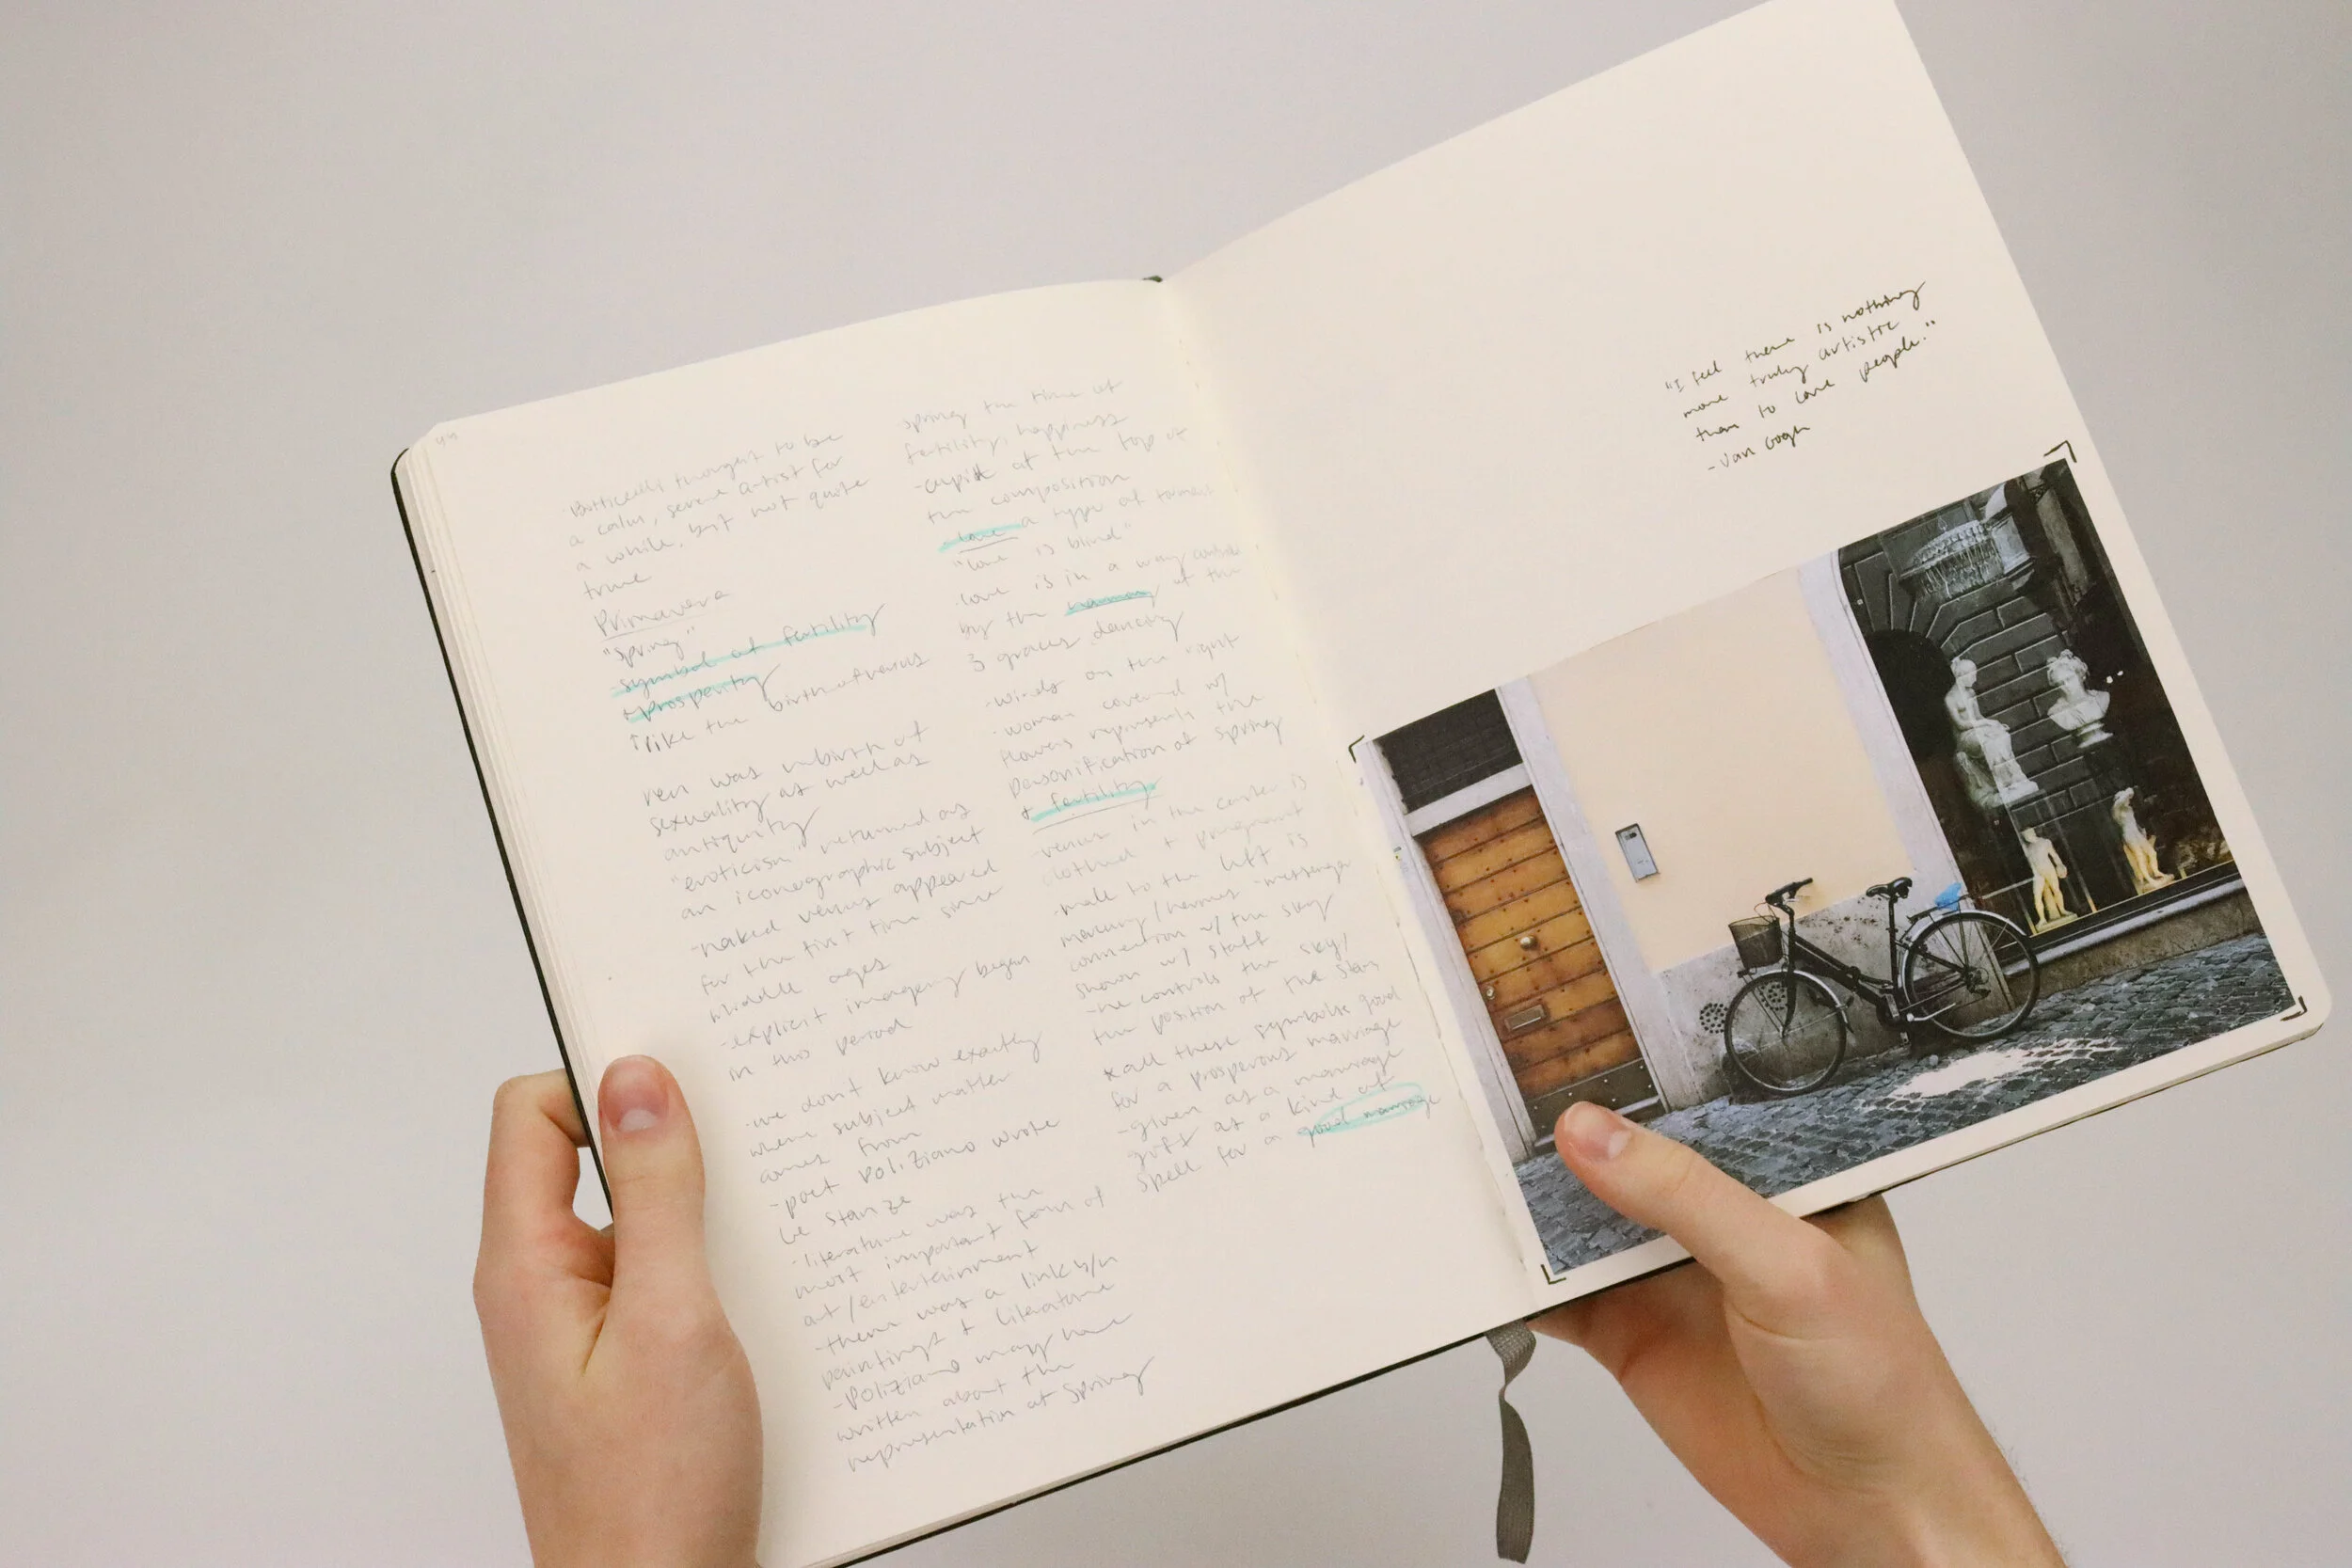 Botticelli thought to be
a calm, serene artist for
a while, but not quote
true
Primavera
"spring"
-symbol of fertility
+prosperity
↑like the birth of venus
ren was rebirth of
sexuality as well as
antiquity
"eroticism" returned as
an iconographic subject
-naked venus appeared
for the first time since
middle ages
-explicit imagery began
in this period
-we don't know exactly
where subject matter
comes from
-poet Poliziano wrote
le stanze
-literature was the
most important form of
art/entertainment
-there was a link b/n
paintings + literature
-Poliziano may have
written about the
representation of Spring
spring the time of
fertility, happiness
-cupid at the top of
the composition
-love a type of
"love is blind"
-love is in a way
by the harmony of the
3 graces dancing
-winds on the right
-woman covered w/
flowers represents the
personification of spring
+ fertility
-venus in the center is
clothed + pregnant
-male to the left is
mercury/hermes -messenger
connection w/ the sky
shown w/ staff
-he controls the sky/
the position of the stars
*all these symbols good
for a prosperous marriage
-given as a marriage
gift as a kind of
spell for a good marriage
"I feel there is nothing
more truly artistic
than to love people."
-Van Gogh